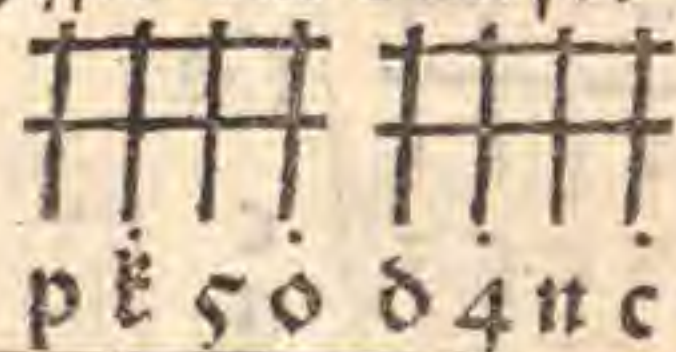 p k 5 o d 4 n c